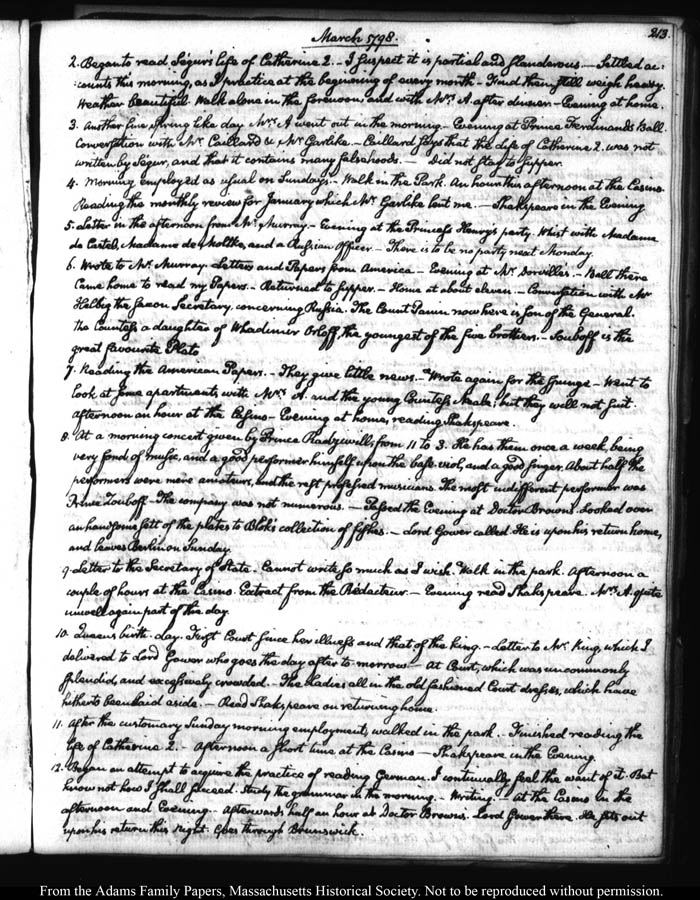 213.
March 1798.
2. Began to read Segur's life of Catherine 2. - I suspect it is partial and slanderous. - Settled ac:
:counts this morning, as I practice at the beginning of every month - Find them still weigh heavy.
Weather beautiful. Walk alone in the forenoon, and with Mrs. A. after dinner - Evening at home.
3. Another fine, spring like day. Mrs. A went out in the morning. - Evening at Prince Ferdinand's Ball.
Conversation with Mr. Caillard & Mr. Garlike. - Caillard says that the Life of Catherine 2. was not
written by Segur, and that it contains many falsehoods. - did not stay to supper.
4. Morning employed as usual on Sundays. - Walk in the Park. An hour this afternoon at the Casino.
Reading the monthly review for January which Mr. Garlike lent me. - Shakspeare in the Evening
5. Letter in the afternoon from Mr. Murray. - Evening at the Princess Henry's party. Whist with Madame
de Castel, Madame de Moltke, and a Russian Officer - There is to be no party next Monday.
6. Wrote to Mr. Murray. Letters and Papers from America - Evening at Mr. Dorville's. - Ball there
Came home to read my Papers. - Returned to supper. - Home at about eleven. - Conversation with Mr
Helbig the Saxon Secretary, concerning Russia. The Count Panin now here is son of the General.
the Countess a daughter of Whadimir Orloff, the youngest of the five brothers. - Souboff is the
great favourite Plato
7. Reading the American Papers. - They give little news. - Wrote again for the Spunge - Went to
look at some apartments, with Mrs. A. and the young Countess Neale; but they will not suit.
afternoon an hour at the Casino - Evening at home, reading Shakspeare.
8. At a morning concert given by Prince Radzywill; from 11 to 3. He has them once a week, being
very fond of music, and a good performer himself upon the base viol, and a good singer. About half the
performers were mere amateurs, and the rest professed musicians. The most indifferent performer was
Prince Zouboff - The company was not numerous. - Passed the Evening at Doctor Brown's. Looked over
an handsome sett of the plates to Blok's collection of fishes. - Lord Gower called. He is upon his return home,
and leaves Berlin on Sunday.
9. Letter to the Secretary of State. Cannot write so much as I wish. Walk in the park. Afternoon a
couple of hours at the Casino. Extract from the Rédacteur. - Evening read Shakspeare. Mrs. A. quite
unwell again part of the day.
10. Queens birth-day. First Court since her illness and that of the king. - Letter to Mr. King, which I
delivered to Lord Gower who goes the day after to morrow - At Court, which was uncommonly
splendid, and excessively crowded. - The Ladies all in the old fashioned Court dresses, which have
hitherto been laid aside. - Read Shakspeare on returning home.
11. After the customary Sunday morning employment, walked in the park. - Finished reading the
life of Catherine 2. - Afternoon a short time at the Casino - Shakspeare in the Evening.
12. Began an attempt to acquire the practice of reading German. I continually feel the want of it. But
know not how I shall succeed. Study the grammar in the morning. - Writing. - At the Casino in the
afternoon and Evening. - Afterwards half an hour at Doctor Browns. Lord Gower there. He sets out
upon his return this night. Goes through Brunswick.
From the Adams Family Papers, Massachusetts Historical Society. Not to be reproduced without permission.